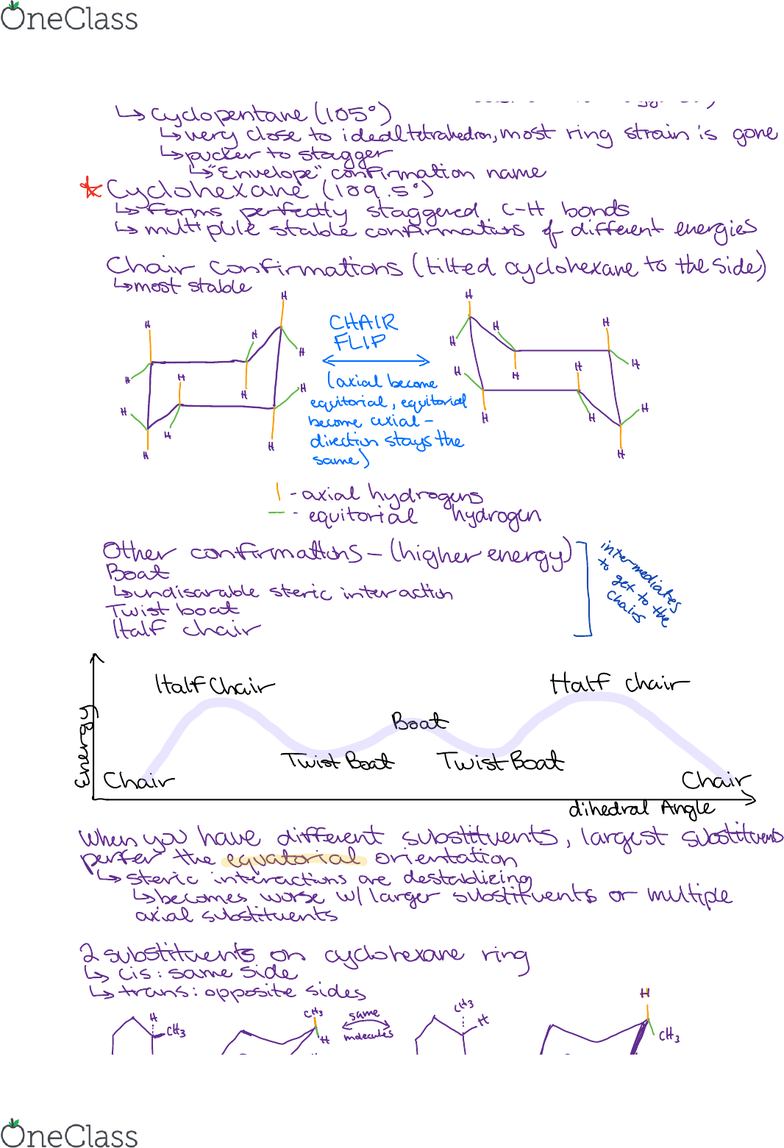 OneClass
↳ Cyclopentane (105°)
↳ very close to ideal tetrahedron, most ring strain is gone
↳ pucker to stagger
↳ "Envelope" confirmation name
Cyclohexane (109.5°)
↳ forms perfectly staggered C-H bonds
↳ multiple stable confirmations of different energies
Chair confirmations (tilted cyclohexane to the side)
↳ most stable
CHAIR
FLIP
(axial become
equitorial, equitorial
become axial -
direction stays the
same)
H H H H H H H H H H H H
H H H H H H H H H H H H
- axial hydrogens
- equitorial hydrogen
Other confirmations - (higher energy)
Boat
↳ undisarable steric interaction
Twist boat
Half chair
intermediates
to get to the
chairs
Energy
Half Chair
Half chair
Boat
Twist Boat
Twist Boat
Chair
Chair
dihedral Angle
When you have different substituents, largest substituents
perfer the equatorial orientation
↳ steric interactions are destablizing
↳ becomes worse w/ larger substituents or multiple
axial substituents
2 substituents on cyclohexane ring
↳ cis: same side
↳ trans: opposite sides
H
CH3
CH3
H
same
molecules
CH3
H
H
CH3
OneClass